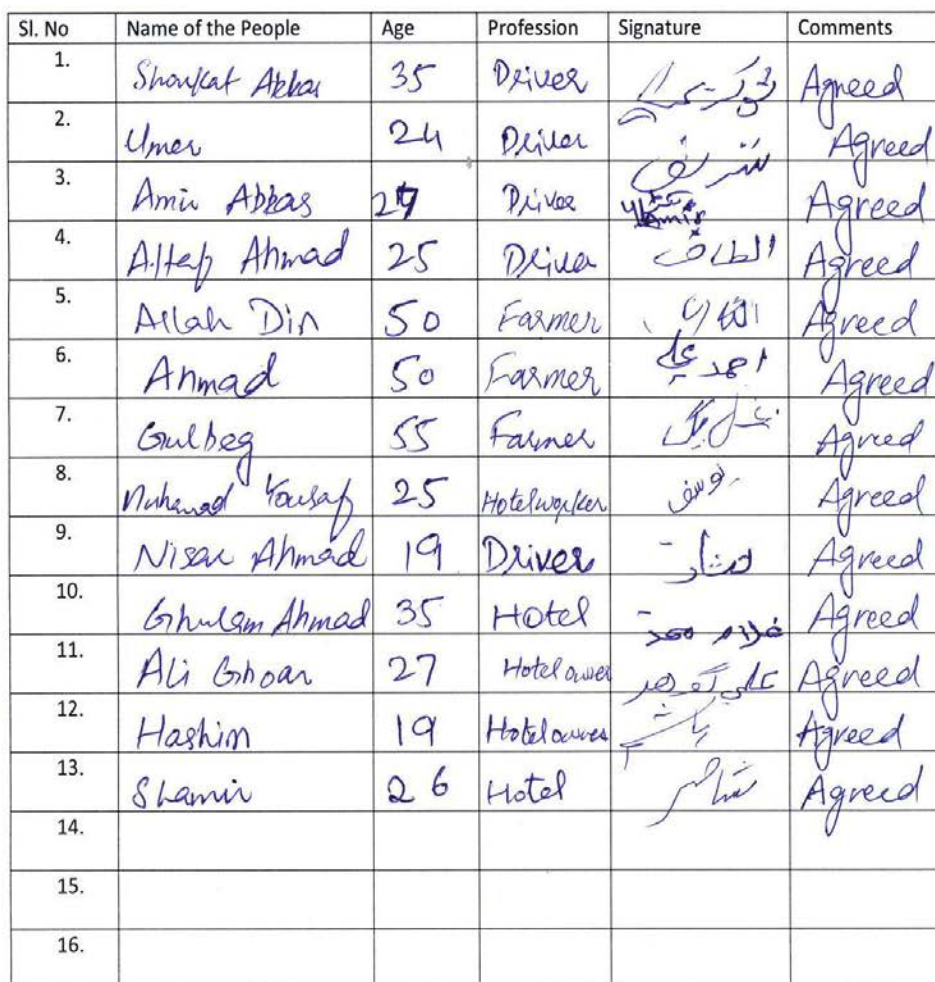 Sl. No Name of the People Age Profession Signature Comments
1. Shoukat Abbas 35 Driver Agreed
2. Umer 24 Driver شریف Agreed
3. Amir Abbas 27 Driver Amir Agreed
4. Altaf Ahmad 25 Driver الطاف Agreed
5. Allah Din 50 Farmer Agreed
6. Ahmad 50 Farmer احمد علی Agreed
7. Gulbeg 55 Farmer Agreed
8. Muhamad Yousaf 25 Hotel worker یوسف Agreed
9. Nisar Ahmad 19 Driver نثار Agreed
10. Ghulam Ahmad 35 Hotel غلام محمد Agreed
11. Ali Ghoar 27 Hotel owner علی گوھر Agreed
12. Hashim 19 Hotel owner ہاشم Agreed
13. Shamir 26 Hotel Agreed
14.
15.
16.